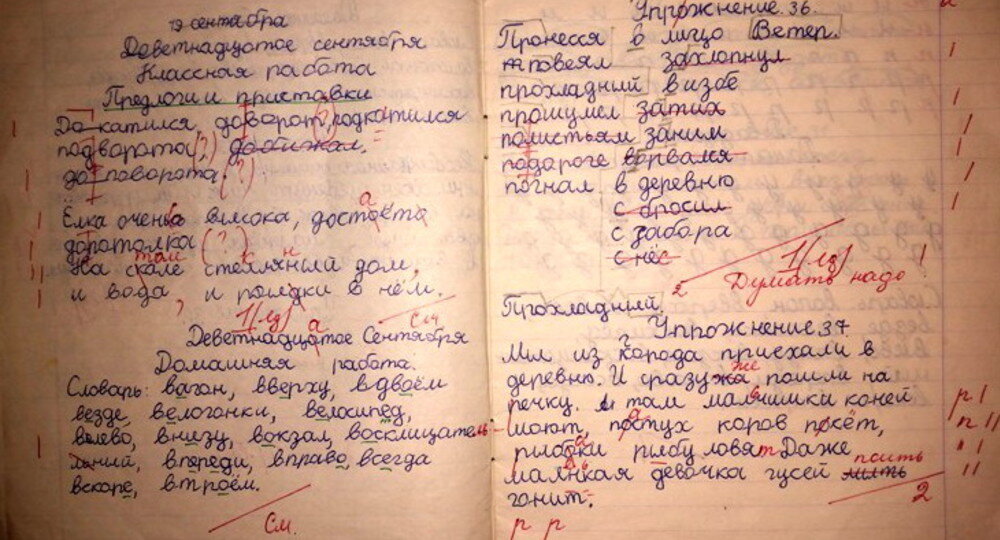 19 сентября
Деветнадцотое сентября
Классная работа
Предлоги и приставки
Докатился, доворот, подкатился
подворота (?) добижал.
доповорота. (?)
Ёлка очень висока, достаёта
допотолка (?)
На скале стеклянный дом,
и вода, и рыбки в нём.
1 (лд) См
Деветнадцотое Сентября
Домашняя работа.
Словарь: вагон, вверху, вдвоём
везде, велогонки, велосипед,
влево, внизу, вокзал, восклицатель-
льный, впереди, вправо, всегда
вскоре, втроём.
См.
Упрожнение 36.
Пронесся в лицо Ветер.
повеял захлопнул
прохладний визбе
прошумел затих
полистьям заним
подароге ворвался
погнал в деревню
с бросил
с забора
с нёс
1 (лд)
2 Думать надо!
Прохладний.
Упрожнение 37
Мы из города приехали в
деревню. И сразужа пошли на
речку. И там малчишки коней
моют, постух коров посёт,
рибаки рибу ловят Даже
малнкая девочка гусей мить
гонит.
2
р р